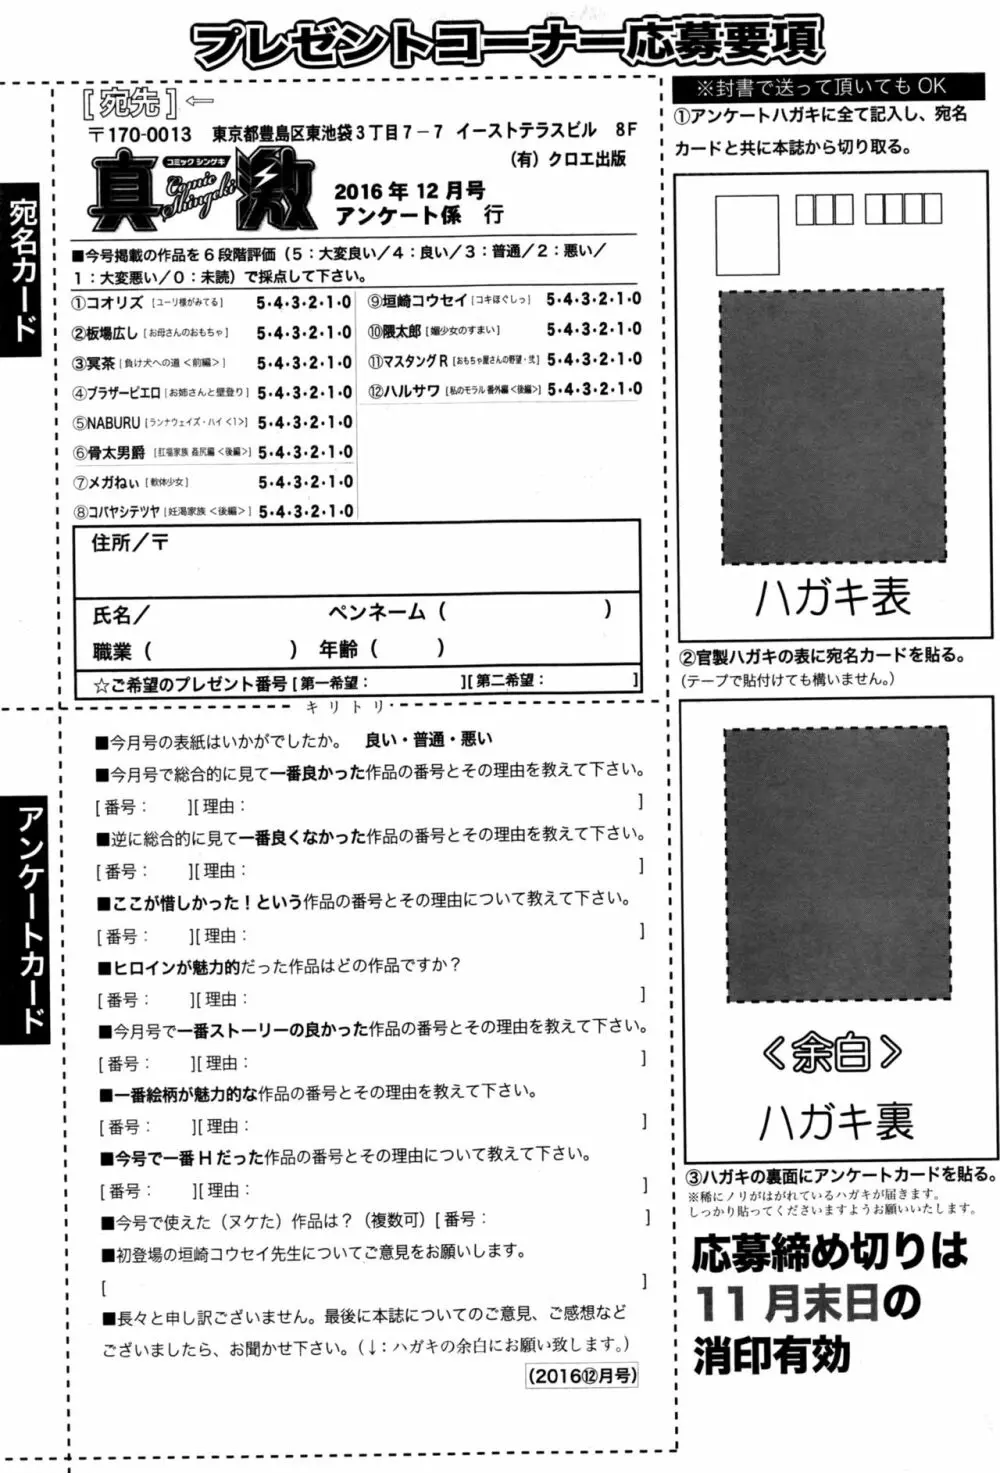 プレゼントコーナー応募要項
[宛先]←
〒170-0013 東京都豊島区東池袋3丁目7－7 イーストテラスビル 8F
(有)クロエ出版
コミックシンゲキ
真激
Comic Shingeki
2016年12月号
アンケート係 行
■今号掲載の作品を6段階評価（5：大変良い／4：良い／3：普通／2：悪い／
1：大変悪い／0：未読）で採点して下さい。
①コオリズ [ユーリ様がみてる] 5・4・3・2・1・0
②板場広し [お母さんのおもちゃ] 5・4・3・2・1・0
③冥茶 [負け犬への道＜前編＞] 5・4・3・2・1・0
④ブラザーピエロ [お姉さんと壁登り] 5・4・3・2・1・0
⑤NABURU [ランナウェイズ・ハイ＜1＞] 5・4・3・2・1・0
⑥骨太男爵 [肛福家族 姦尻編＜後編＞] 5・4・3・2・1・0
⑦メガねぃ [軟体少女] 5・4・3・2・1・0
⑧コバヤシテツヤ [妊渇家族＜後編＞] 5・4・3・2・1・0
⑨垣崎コウセイ [コキほぐしっ] 5・4・3・2・1・0
⑩隈太郎 [媚少女のすまい] 5・4・3・2・1・0
⑪マスタングR [おもちゃ屋さんの野望・弐] 5・4・3・2・1・0
⑫ハルサワ [私のモラル 番外編＜後編＞] 5・4・3・2・1・0
住所／〒
氏名／ ペンネーム（ ）
職業（ ） 年齢（ ）
☆ご希望のプレゼント番号[第一希望： ][第二希望： ]
キリトリ
■今月号の表紙はいかがでしたか。 良い・普通・悪い
■今月号で総合的に見て一番良かった作品の番号とその理由を教えて下さい。
[番号： ][理由： ]
■逆に総合的に見て一番良くなかった作品の番号とその理由を教えて下さい。
[番号： ][理由： ]
■ここが惜しかった！という作品の番号とその理由について教えて下さい。
[番号： ][理由： ]
■ヒロインが魅力的だった作品はどの作品ですか？
[番号： ][理由： ]
■今月号で一番ストーリーの良かった作品の番号とその理由を教えて下さい。
[番号： ][理由： ]
■一番絵柄が魅力的な作品の番号とその理由を教えて下さい。
[番号： ][理由： ]
■今号で一番Hだった作品の番号とその理由について教えて下さい。
[番号： ][理由： ]
■今号で使えた（ヌケた）作品は？（複数可）[番号： ]
■初登場の垣崎コウセイ先生についてご意見をお願いします。
[ ]
■長々と申し訳ございません。最後に本誌についてのご意見、ご感想など
ございましたら、お聞かせ下さい。（↓：ハガキの余白にお願い致します。）
（2016⑫月号）
宛名カード
アンケートカード
※封書で送って頂いてもOK
①アンケートハガキに全て記入し、宛名
カードと共に本誌から切り取る。
ハガキ表
②官製ハガキの表に宛名カードを貼る。
（テープで貼付けても構いません。）
＜余白＞
ハガキ裏
③ハガキの裏面にアンケートカードを貼る。
※稀にノリがはがれているハガキが届きます。
しっかり貼ってくださいますようお願いいたします。
応募締め切りは
11月末日の
消印有効